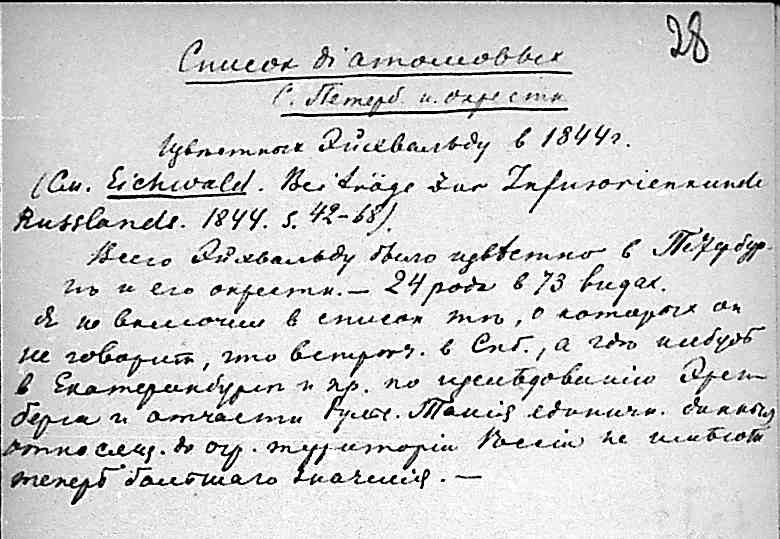 28
Список діатомовых
С. Петерб. и. окрестн.
Извѣстных Эйхвальду в 1844 г.
(См. Eichwald. Beiträge zur Infusorienkunde
Russlands. 1844. s. 42–68).
Всего Эйхвальду было извѣстно в Петербур-
гѣ и его окрестн. — 24 рода в 73 видах.
Я не включил в список тѣ, о которых он
не говорит, что встрѣч. в Спб., а гдѣ нибудь
в Екатеринбургѣ и пр. по изслѣдованію Эрен-
берга и отчасти Такія единичн. данныя
относящ. до огр. територіи Россіи не имѣют
теперь большаго значенія. —